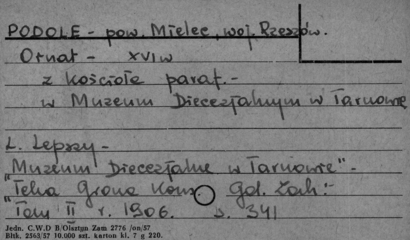 PODOLE - pow. Mielec, woj. Rzeszów.
Ornat - XVI w
z kościoła paraf. -
w Muzeum Diecezjalnym w Tarnowie
L. Lepszy -
"Muzeum Diecezjalne w Tarnowie" -
"Teka Grona Kons Gal. Zach. -
"Tom II r. 1906. s. 341
Jedn. C.W.D B/Olsztyn Zam 2776 /on/57
Bltk. 2563/57 10.000 szt. karton kl. 7 g 220.